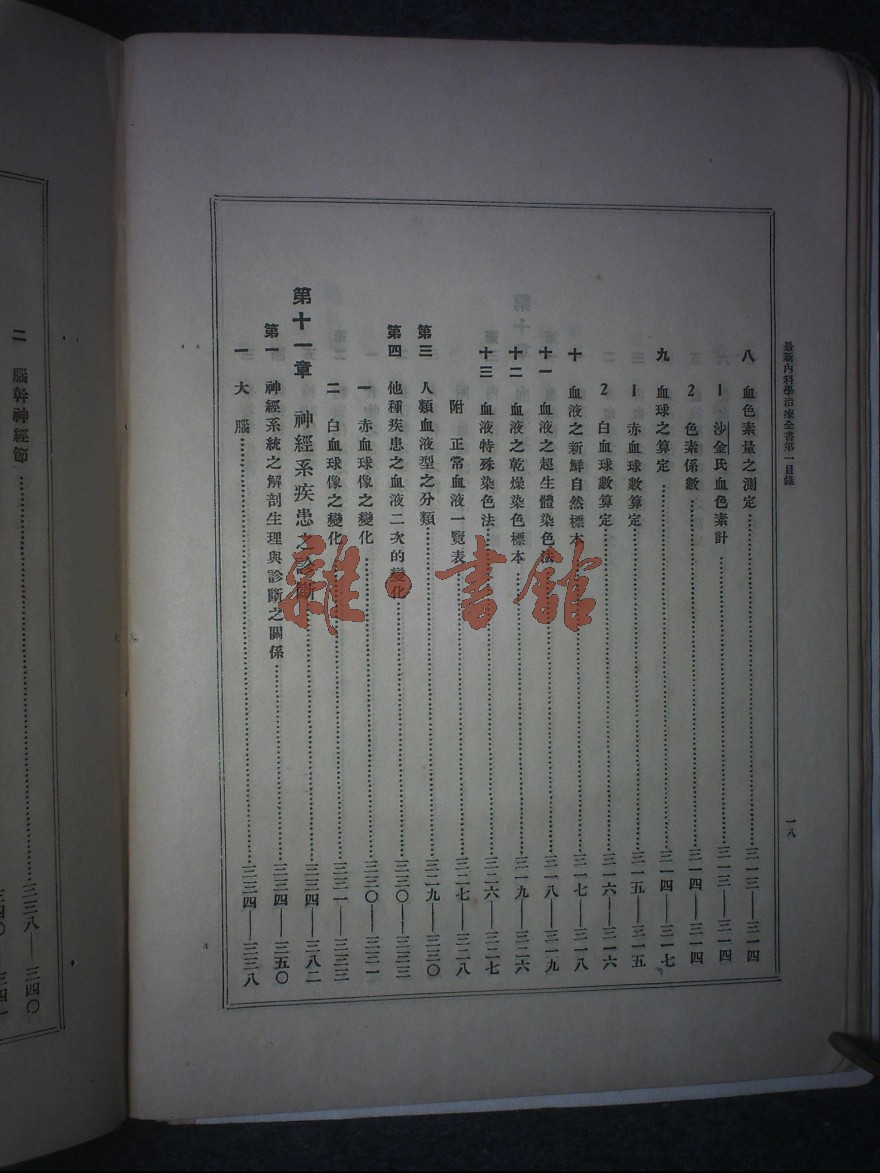 最新內科學治療全書第一目錄
一八
八 血色素量之測定……三一三——三一四
1 沙金氏血色素計……三一三——三一四
2 色素係數……三一四——三一四
九 血球之算定……三一四——三一七
1 赤血球數算定……三一五——三一五
2 白血球數算定……三一六——三一六
十 血液之新鮮自然標本……三一七——三一八
十一 血液之超生體染色法……三一八——三一九
十二 血液之乾燥染色標本……三一九——三二六
十三 血液特殊染色法……三二六——三二七
附 正常血液一覽表……三二七——三二八
第三 人類血液型之分類……三二九——三三〇
第四 他種疾患之血液二次的變化……三三〇——三三三
一 赤血球像之變化……三三〇——三三一
二 白血球像之變化……三三一——三三三
第十一章 神經系疾患之診斷……三三四——三八二
第一 神經系統之解剖生理與診斷之關係……三三四——三五〇
一 大腦……三三四——三三八
二 腦幹神經節……三三八——三四〇
雜·書館